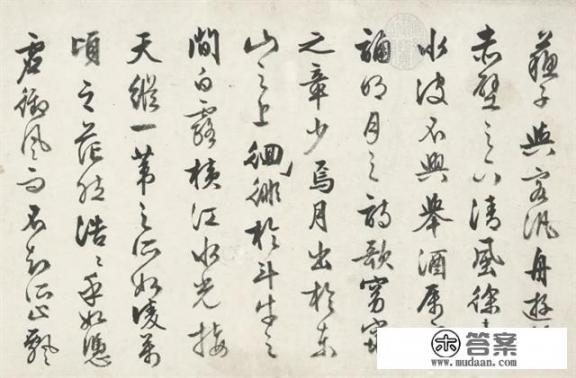 蘇子與客汎舟遊
赤壁之下清風徐來
水波不興舉酒屬
誦明月之詩歌窈窕
之章少焉月出於東
山之上徊徘於斗牛之
間白露橫江水光接
天縱一葦之所如凌萬
頃之茫然浩〻乎如憑
虛御風而不知所止飄
答案
www.mudaan.com